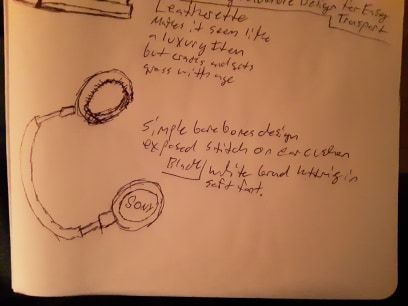 Design for Easy Transport
Leatherette
Makes it seem like
a luxury Item
but cracks and gets
gross with age
Simple bare bones design
exposed stitch on ear cushen
Black/white brand lettring in
soft font.
Sony